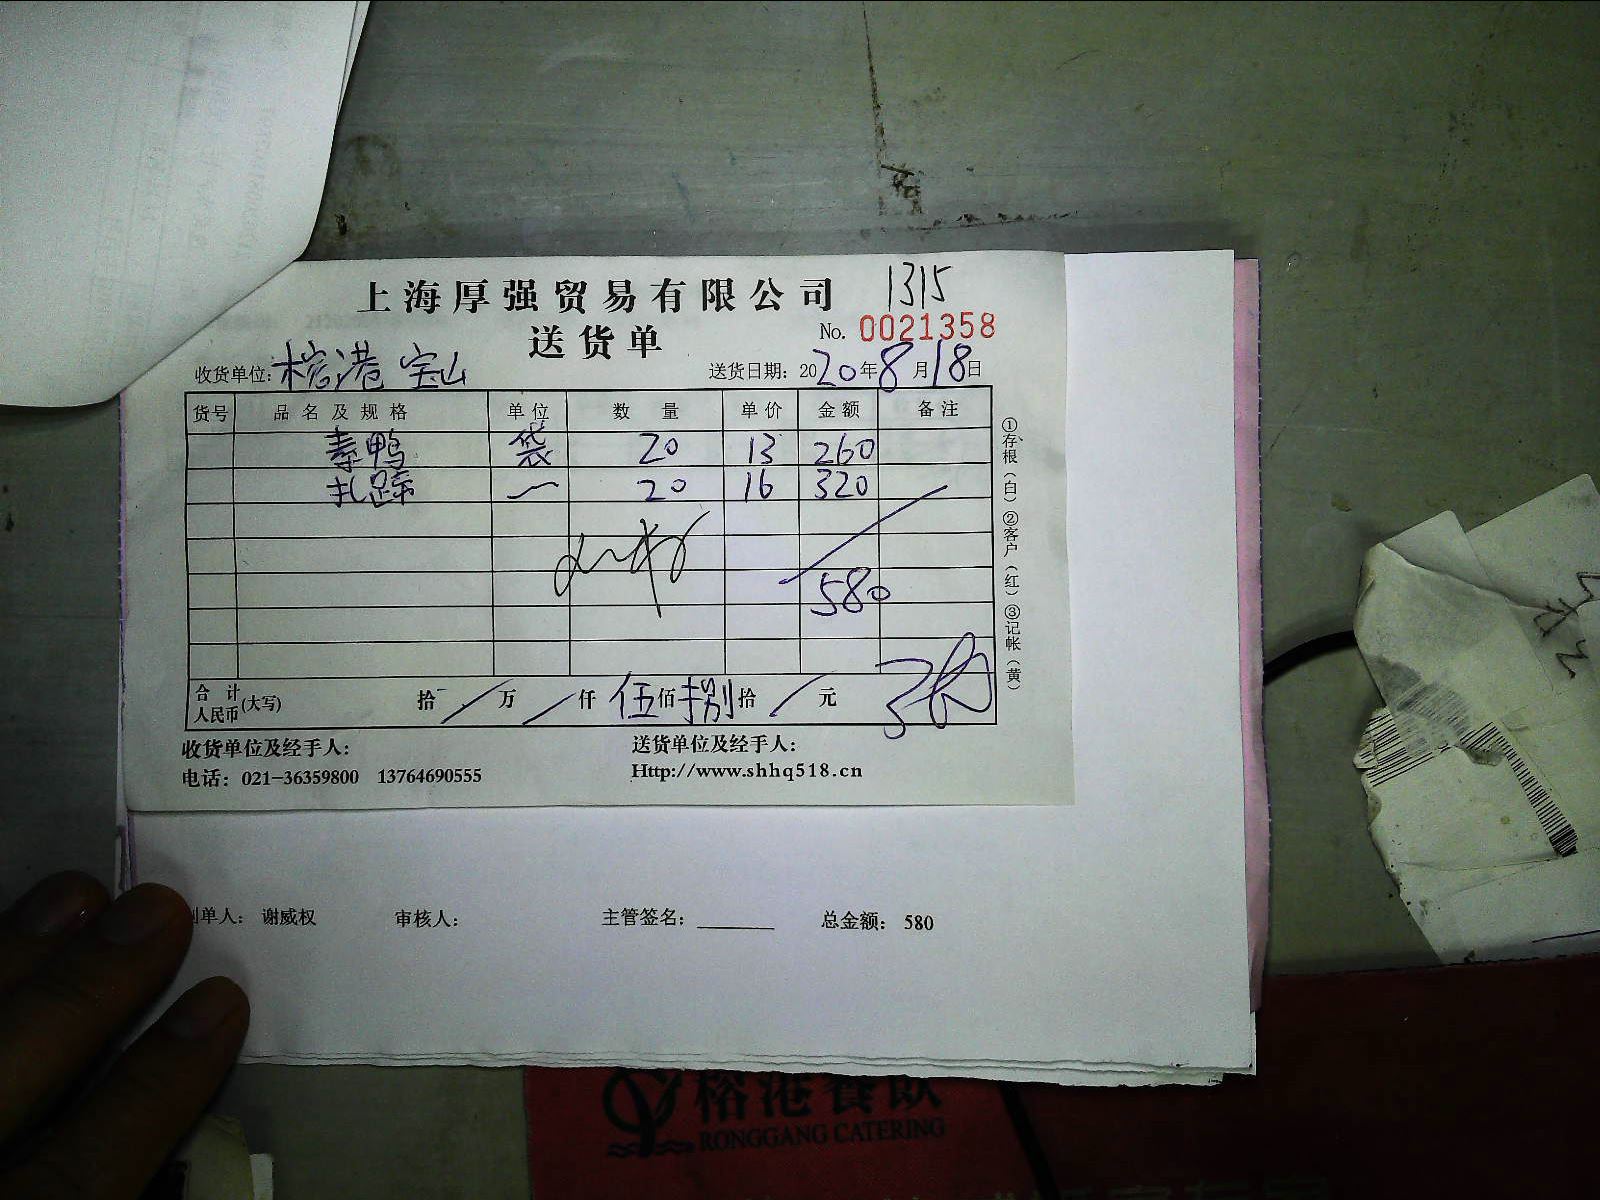 上海厚强贸易有限公司 1315
送货单 No. 0021358
收货单位: 榕港 宝山 送货日期: 2020年8月18日
货号 品名及规格 单位 数量 单价 金额 备注
素鸭 袋 20 13 260
扎蹄 20 16 320
580
合计人民币(大写) 拾 万 仟 伍佰捌拾 元
①存根(白) ②客户(红) ③记帐(黄)
收货单位及经手人: 送货单位及经手人:
电话: 021-36359800 13764690555 Http://www.shhq518.cn
单人: 谢威权 审核人: 主管签名: 总金额: 580
榕港餐飲
RONGGANG CATERING